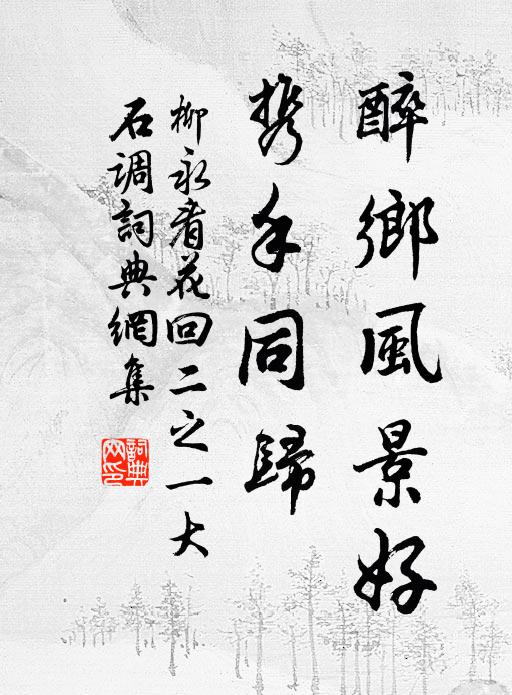 醉鄉風景好
攜手同歸
柳永看花回二之一大
石調詞典網集
詞典网印